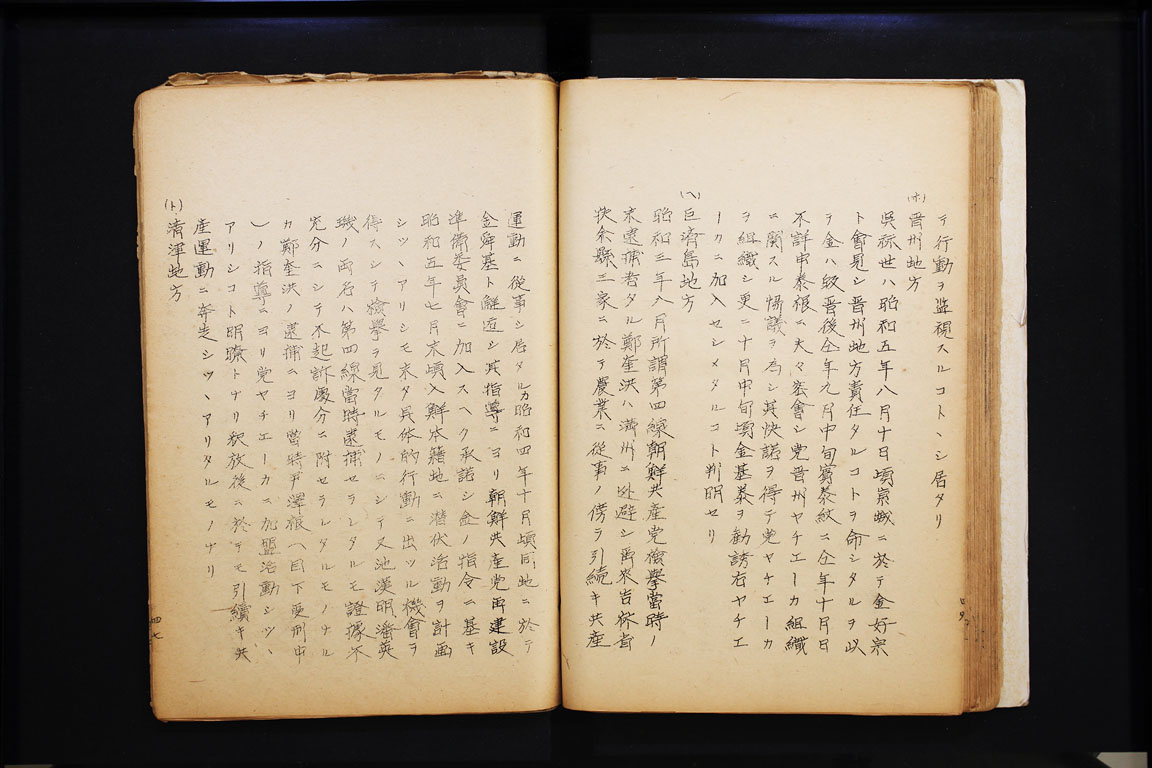 テ行動ヲ監視スルコトヽシ居タリ
(ホ)
晋州地方
吳祐世ハ昭和五年八月十日頃京城ニ於テ金好宗
ト會見シ晋州地方責任タルコトヲ命シタルヲ以
テ金ハ皈晋後仝年九月中旬 泰紋ニ仝年十月日
不詳申泰根ニ夫々密會シ党晋州ヤチエーカ組織
ニ関スル協議ヲ為シ其快諾ヲ得テ党ヤチエーカ
ヲ組織シ更ニ十月中旬頃金基泰ヲ勧誘右ヤチエ
ーカニ加入セシメタルコト判明セリ
(ヘ)
巨済島地方
昭和三年八月所謂第四線朝鮮共産党検擧當時ノ
末逮捕者タル鄭奎洪ハ満州ニ逃避シ再来吉林省
扶余縣三家ニ於テ農業ニ従事ノ傍ラ引続キ共産
四六
運動ニ従事シ居タルカ昭和四年十月頃同地ニ於テ
金舜基ト觧逅シ其指導ニヨリ朝鮮共産党再建設
準備委員會ニ加入スヘク承諾シ金ノ指令ニ基キ
昭和五年七月末頃入鮮本籍地ニ潜伏活動ヲ計画
シツヽアリシモ末タ具体的行動ニ出ツル機會ヲ
得スシテ檢擧ヲ見タルモノニシテ又池漢明潘英
璣ノ両名ハ第四線當時逮捕セラレタルモ證據不
充分ニシテ不起訴處分ニ附セラレタルモノナル
カ鄭奎洪ノ逮捕ニヨリ當時尹澤根(目下受刑中
)ノ指導ニヨリ党ヤチエーカニ加盟活動シツヽ
アリシコト明瞭トナリ釈放後ニ於テモ引續キ共
産運動ニ奔走シツヽアリタルモノナリ
(ト)
済渾地方
四七